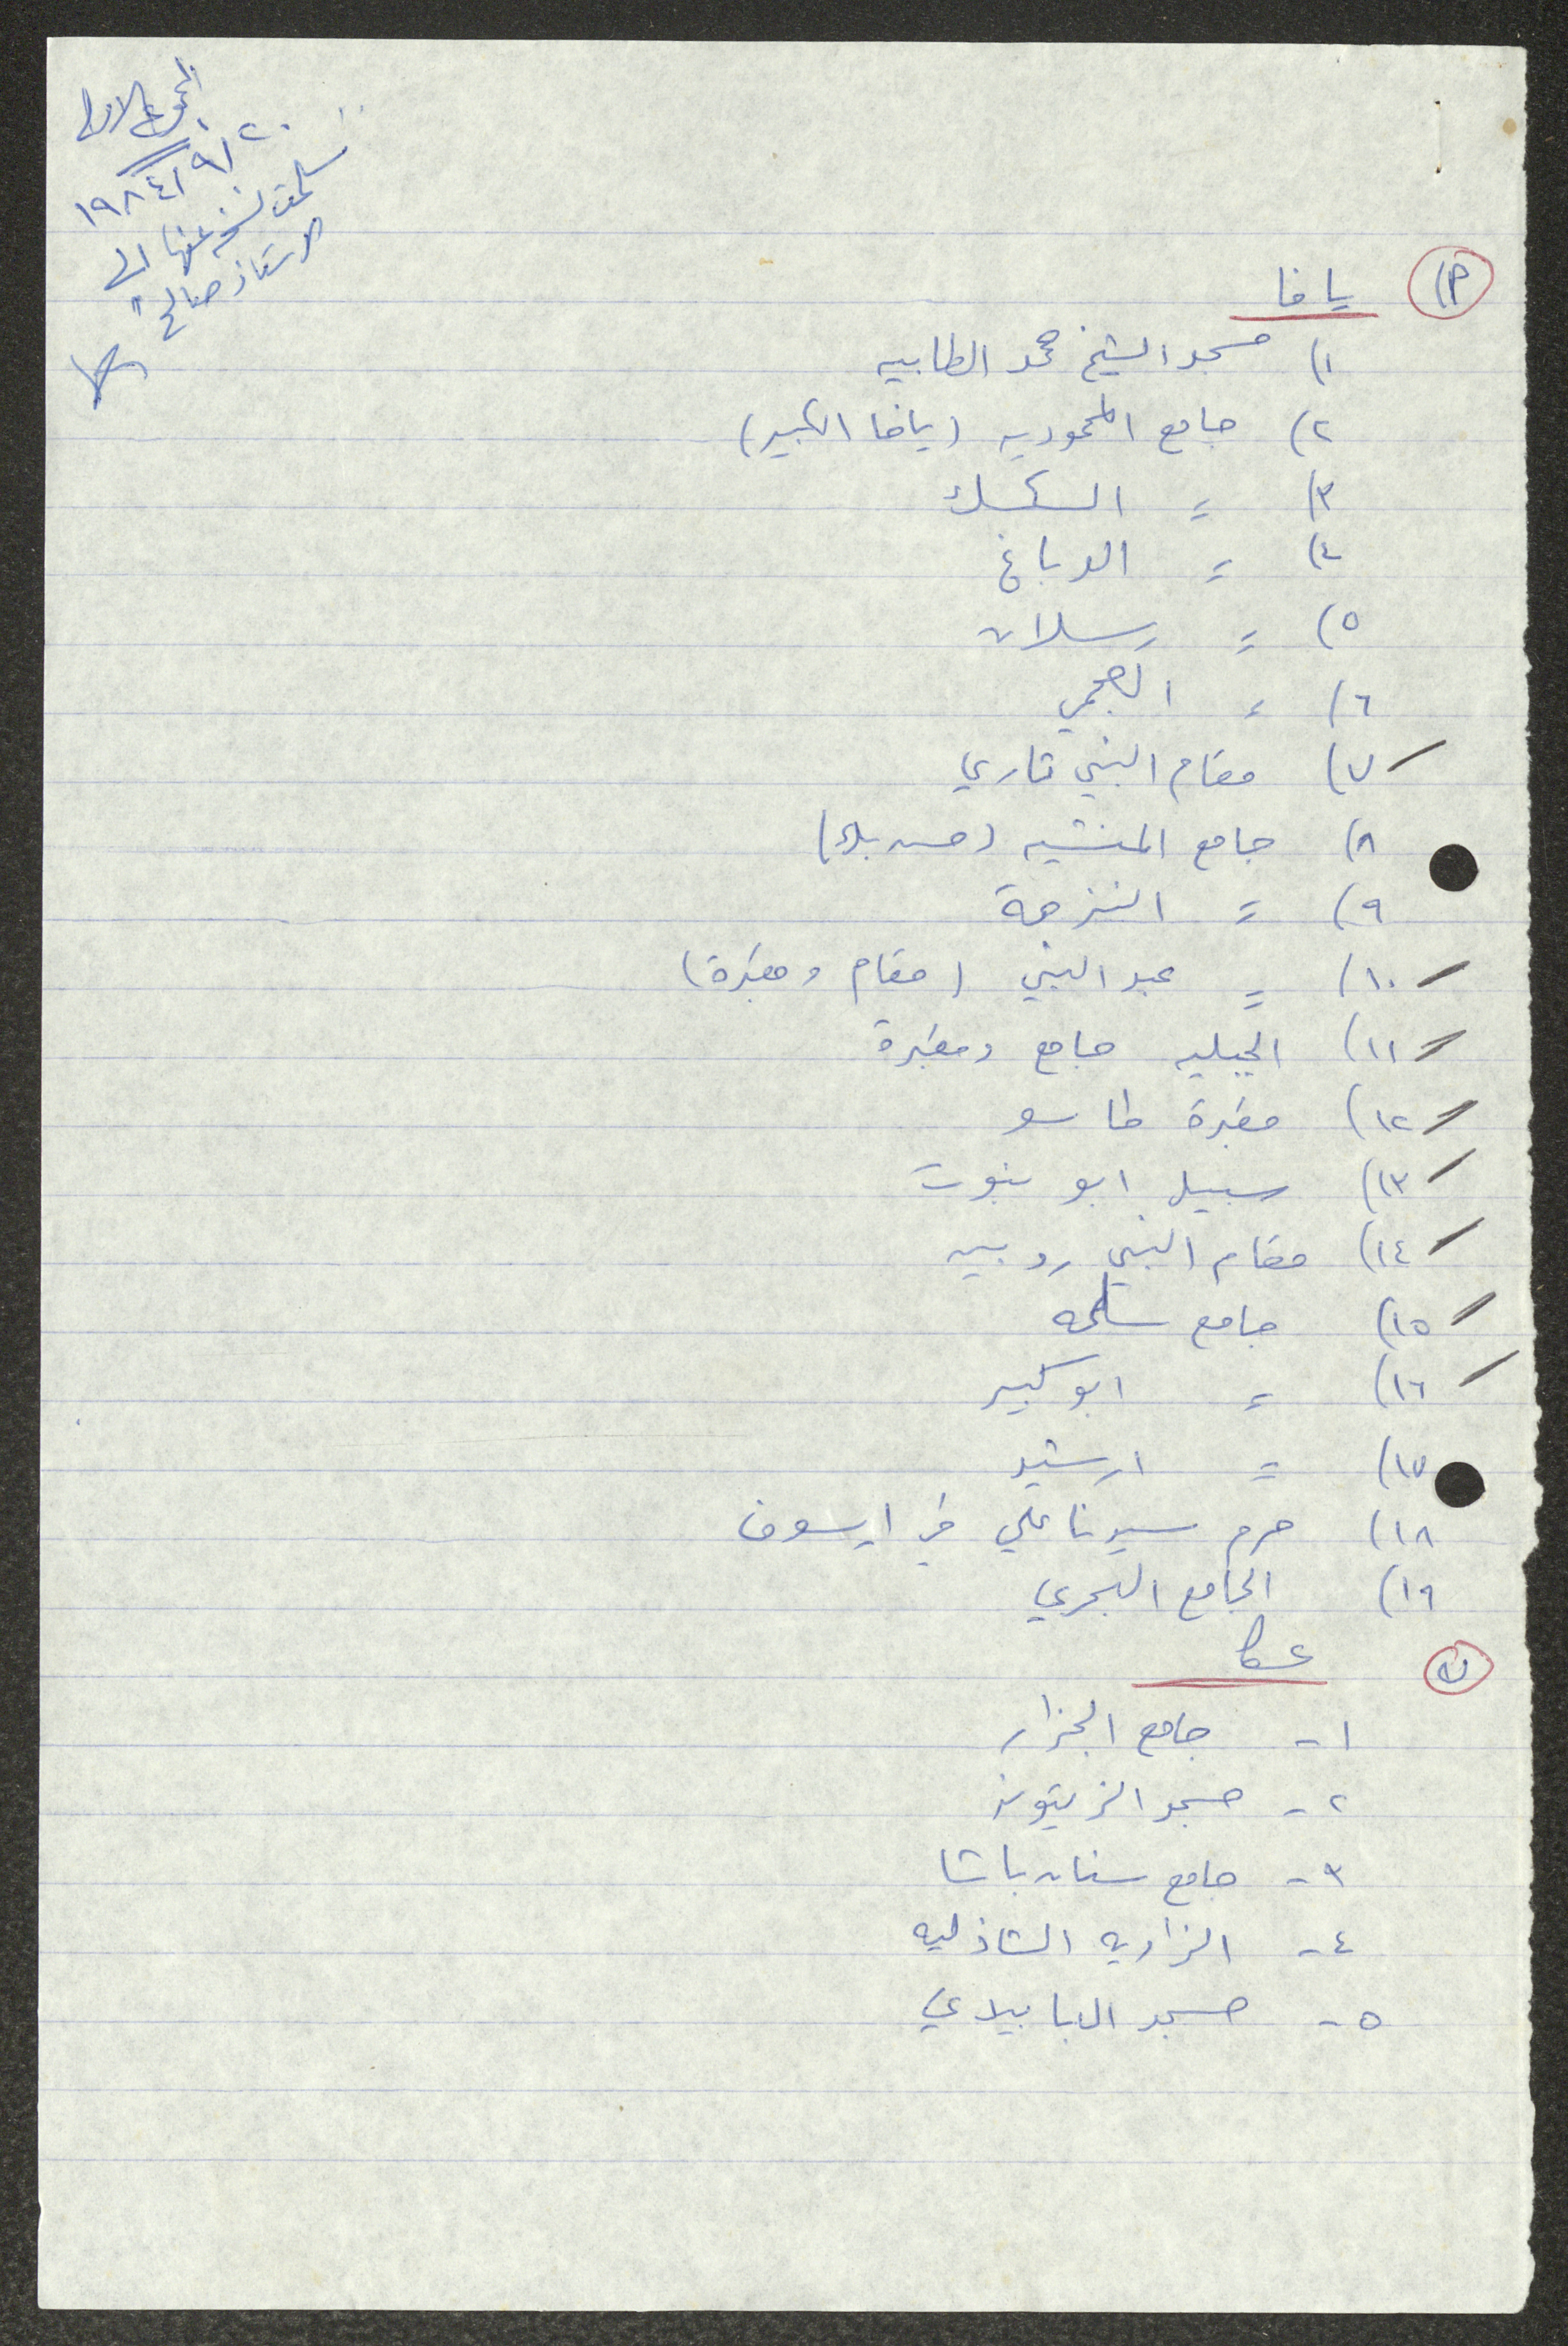 ٢٠/٩/١٩٨٤
سلمت نسخه عنها الى
الاستاذ صالح
أ) يافا
١) مسجد الشيخ محمد الطابيه
٢) جامع المحموديه (يافا الكبير)
٣) = السكسك
٤) = الدباغ
٥) = رسلان
٦) = العجمي
٧) مقام النبي تاري
٨) جامع المنشيه (حسن بك)
٩) = النزهة
١٠) = عبد النبي (مقام ومقبرة)
١١) الجبليه جامع ومقبرة
١٢) مقبرة طاسو
١٣) سبيل ابو نبوت
١٤) مقام النبي روبين
١٥) جامع سلمه
١٦) = ابو كبير
١٧) = ارشيد
١٨) حرم سيدنا علي في ارسوف
١٩) الجامع البحري
ب عكا
١- جامع الجزار
٢- مسجد الزيتونه
٣- جامع سنان باشا
٤- الزاويه الشاذليه
٥- مسجد اللبابيدي